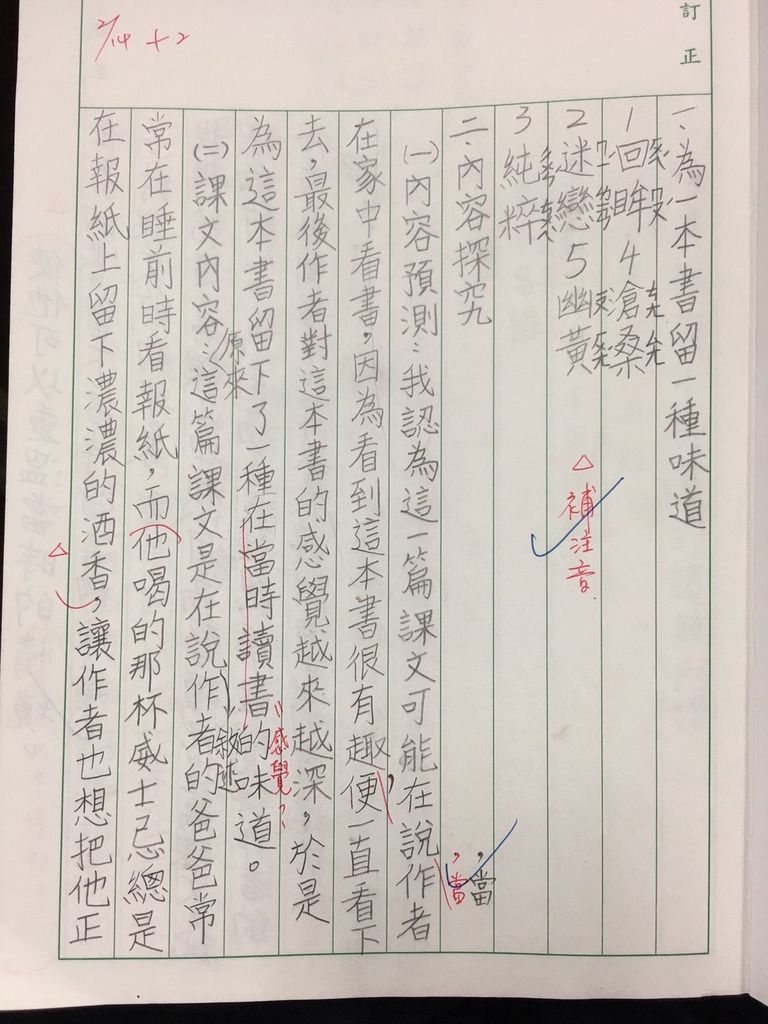 訂正
2/14 +2
一、為一本書留一種味道
1回眸 4滄桑
2迷戀 5幽黃
3純粹
補注音
二、內容探究
㈠內容預測：我認為這一篇課文可能在說作者
，當
，當
在家中看書，因為看到這本書很有趣，便一直看下
去，最後作者對這本書的感覺越來越深，於是
感覺？
為這本書留下了一種在當時讀書的味道。
原來
敘述
㈡課文內容：這篇課文是在說作者的爸爸常
常在睡前時看報紙，而他喝的那杯威士忌總是
在報紙上留下濃濃的酒香，讓作者也想把他正